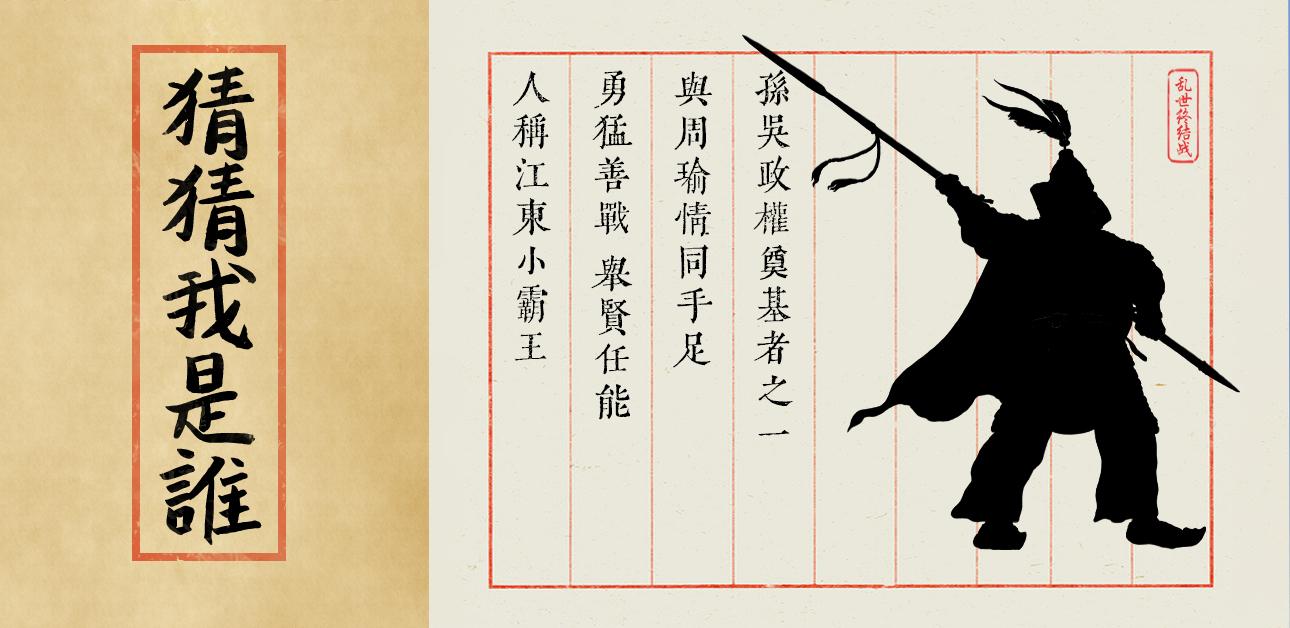 猜猜我是誰
孫吳政權奠基者之一
與周瑜情同手足
勇猛善戰 舉賢任能
人稱江東小霸王
乱世终结战